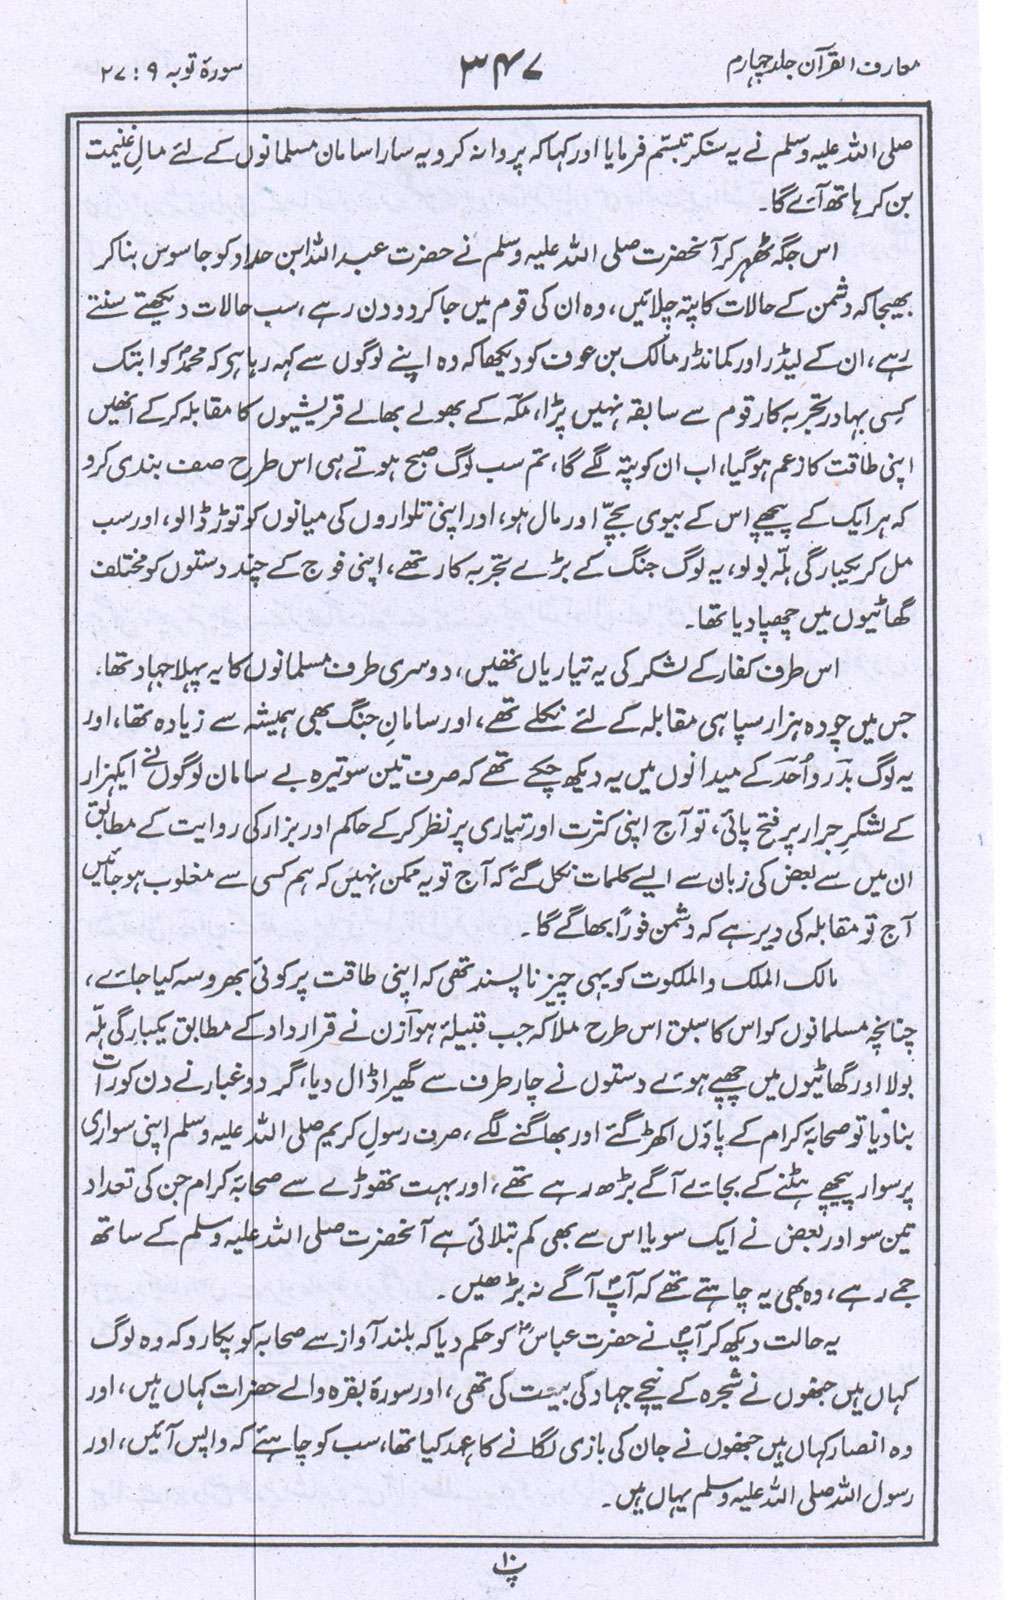 معارف القرآن جلد چہارم
۳۴۷
سورۂ توبہ ۹ : ۲۷
صلی اللہ علیہ وسلم نے یہ سنکر تبسّم فرمایا اور کہا کہ پروا نہ کرو یہ سارا سامان مسلمانوں کے لئے مالِ غنیمت
بن کر ہاتھ آئے گا۔
اس جگہ ٹھہر کر آنحضرت صلی اللہ علیہ وسلم نے حضرت عبد اللہ ابن حداد کو جاسوس بنا کر
بھیجا کہ دشمن کے حالات کا پتہ چلائیں، وہ ان کی قوم میں جا کر دو دن رہے، سب حالات دیکھتے سنتے
رہے، ان کے لیڈر اور کمانڈر مالک بن عوف کو دیکھا کہ وہ اپنے لوگوں سے کہہ رہا ہی کہ محمدؐ کو ابتک
کسی بہادر تجربہ کار قوم سے سابقہ نہیں پڑا، مکہ کے بھولے بھالے قریشیوں کا مقابلہ کر کے انھیں
اپنی طاقت کا زعم ہو گیا، اب ان کو پتہ لگے گا، تم سب لوگ صبح ہوتے ہی اس طرح صف بندی کرو
کہ ہر ایک کے پیچھے اس کے بیوی بچّے اور مال ہو، اور اپنی تلواروں کی میانوں کو توڑ ڈالو، اور سب
مل کر یکبارگی ہلّہ بولو، یہ لوگ جنگ کے بڑے تجربہ کار تھے، اپنی فوج کے چند دستوں کو مختلف
گھاٹیوں میں چھپا دیا تھا۔
اس طرف کفار کے لشکر کی یہ تیاریاں تھیں، دوسری طرف مسلمانوں کا یہ پہلا جہاد تھا۔
جس میں چودہ ہزار سپاہی مقابلہ کے لئے نکلے تھے، اور سامانِ جنگ بھی ہمیشہ سے زیادہ تھا، اور
یہ لوگ بدر و اُحد کے میدانوں میں یہ دیکھ چکے تھے کہ صرف تین سو تیرہ بے سامان لوگوں نے ایکہزار
کے لشکرِ جرار پر فتح پائی، تو آج اپنی کثرت اور تیاری پر نظر کر کے حاکم اور بزار کی روایت کے مطابق
ان میں سے بعض کی زبان سے ایسے کلمات نکل گئے کہ آج تو یہ ممکن نہیں کہ ہم کسی سے مغلوب ہو جائیں
آج تو مقابلہ کی دیر ہے کہ دشمن فوراً بھاگے گا۔
مالک الملک والملکوت کو یہی چیز ناپسند تھی کہ اپنی طاقت پر کوئی بھروسہ کیا جائے،
چنانچہ مسلمانوں کو اس کا سبق اس طرح ملا کہ جب قبیلۂ ہوازن نے قرارداد کے مطابق یکبارگی ہلّہ
بولا اور گھاٹیوں میں چھپے ہوئے دستوں نے چار طرف سے گھیرا ڈال دیا، گرد و غبار نے دن کو رات
بنا دیا تو صحابۂ کرام کے پاؤں اکھڑ گئے اور بھاگنے لگے، صرف رسولِ کریم صلی اللہ علیہ وسلم اپنی سواری
پر سوار پیچھے ہٹنے کے بجائے آگے بڑھ رہے تھے، اور بہت تھوڑے سے صحابۂ کرام جن کی تعداد
تین سو اور بعض نے ایک سو یا اس سے بھی کم بتلائی ہے آنحضرت صلی اللہ علیہ وسلم کے ساتھ
جمے رہے، وہ بھی یہ چاہتے تھے کہ آپؐ آگے نہ بڑھیں۔
یہ حالت دیکھ کر آپؐ نے حضرت عباسؓ کو حکم دیا کہ بلند آواز سے صحابہ کو پکارو کہ وہ لوگ
کہاں ہیں جنھوں نے شجرہ کے نیچے جہاد کی بیعت کی تھی، اور سورۂ بقرہ والے حضرات کہاں ہیں، اور
وہ انصار کہاں ہیں جنھوں نے جان کی بازی لگانے کا عہد کیا تھا، سب کو چاہئے کہ واپس آئیں، اور
رسول اللہ صلی اللہ علیہ وسلم یہاں ہیں۔
پ۱۰